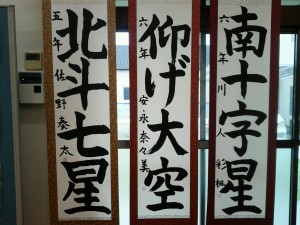 南十字星
六年
仰げ大空
六年 安永奈々美
北斗七星
五年 佐野奏太